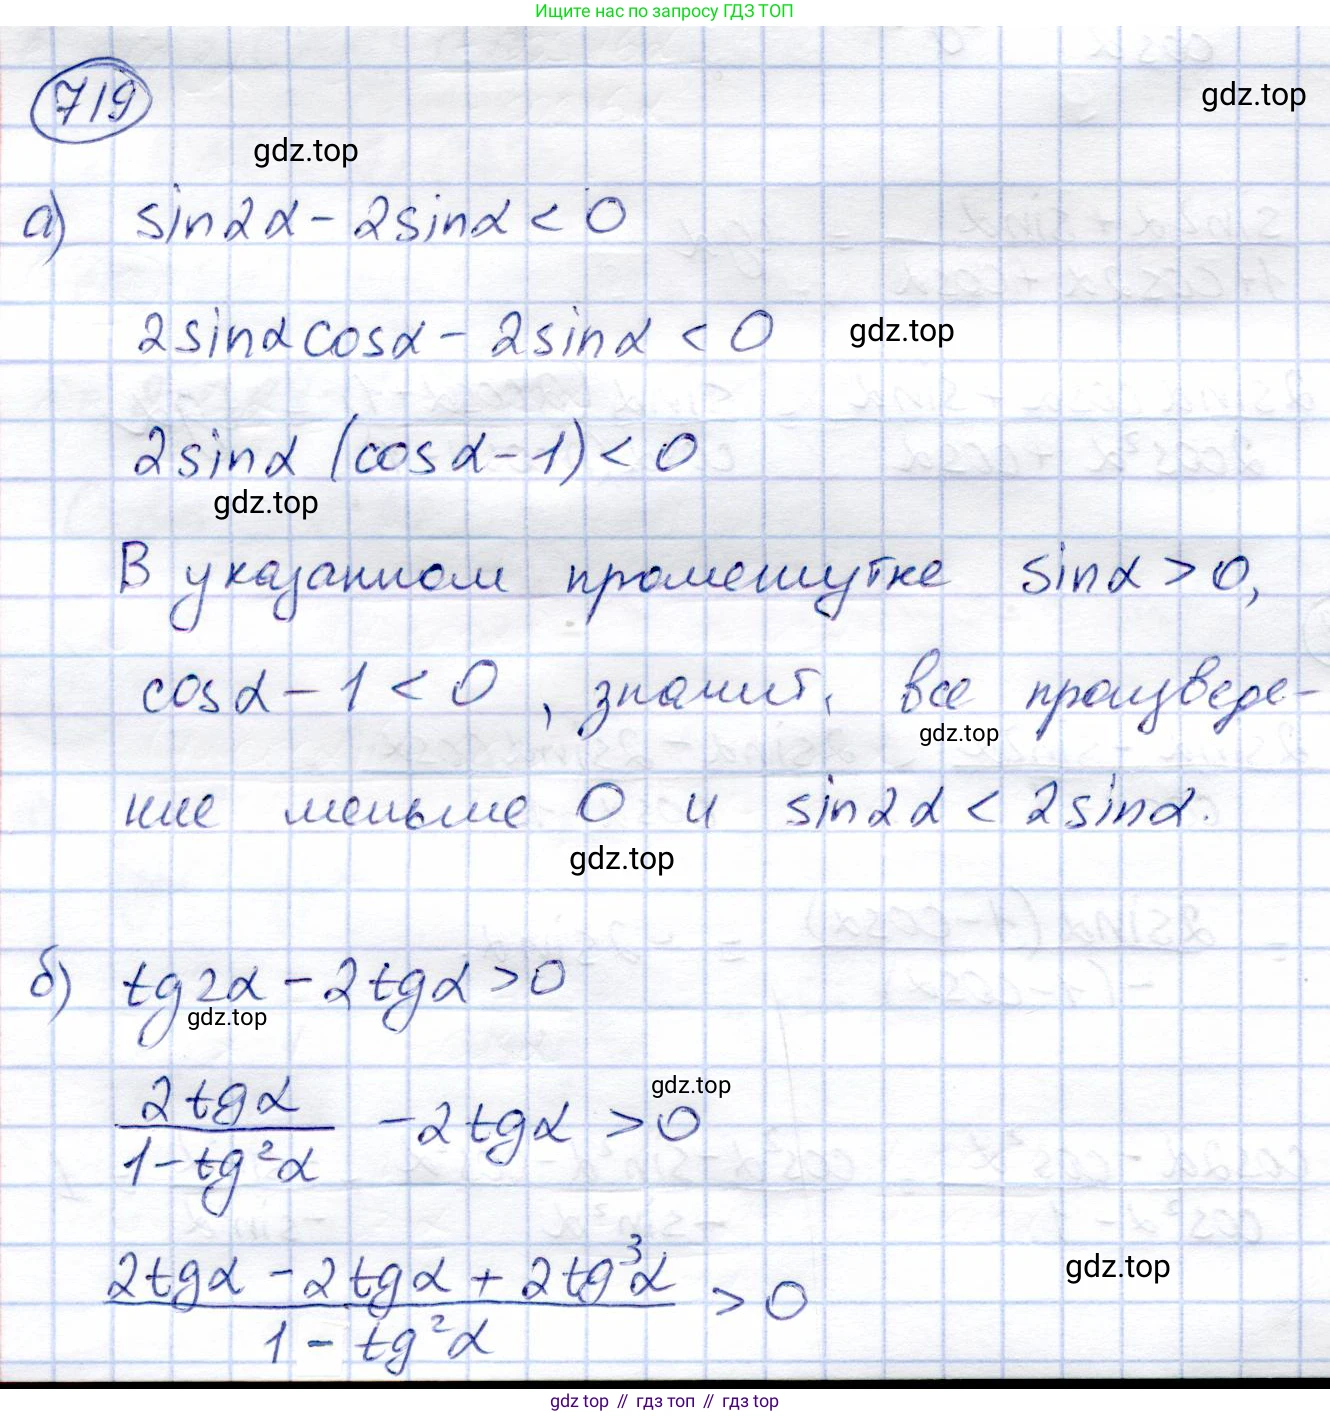 Ищите нас по запросу ГДЗ ТОП
719
gdz.top
gdz.top
а) sin2α - 2sinα < 0
2sinα cosα - 2sinα < 0
gdz.top
2sinα (cosα - 1) < 0
gdz.top
В указанном промежутке sinα > 0,
cosα - 1 < 0, значит, все произведе-
gdz.top
ние меньше 0 и sin2α < 2sinα.
gdz.top
б) tg2α - 2tgα > 0
gdz.top
gdz.top
2tgα / 1 - tg²α - 2tgα > 0
gdz.top
2tgα - 2tgα + 2tg³α / 1 - tg²α > 0
gdz top // гдз топ // гдз top